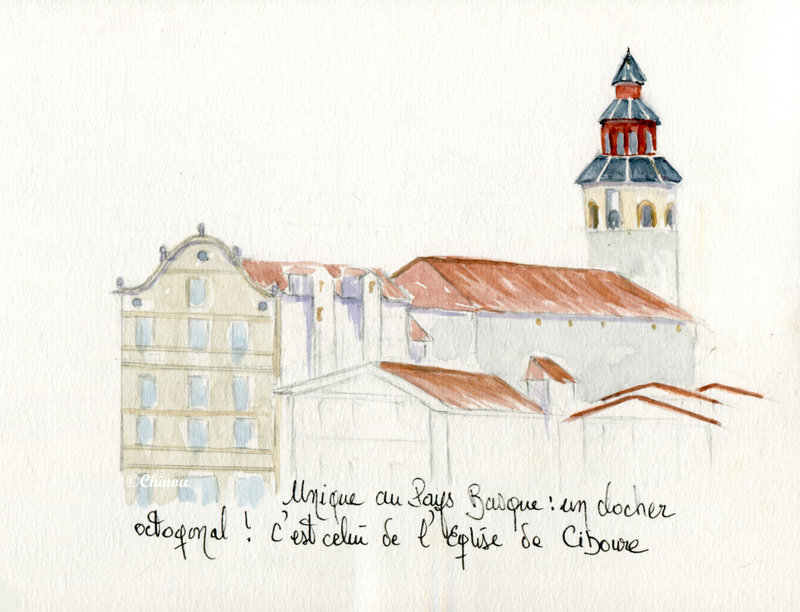 ©Chinou
Unique au Pays Basque : un clocher
octogonal ! C'est celui de l'Eglise de Ciboure